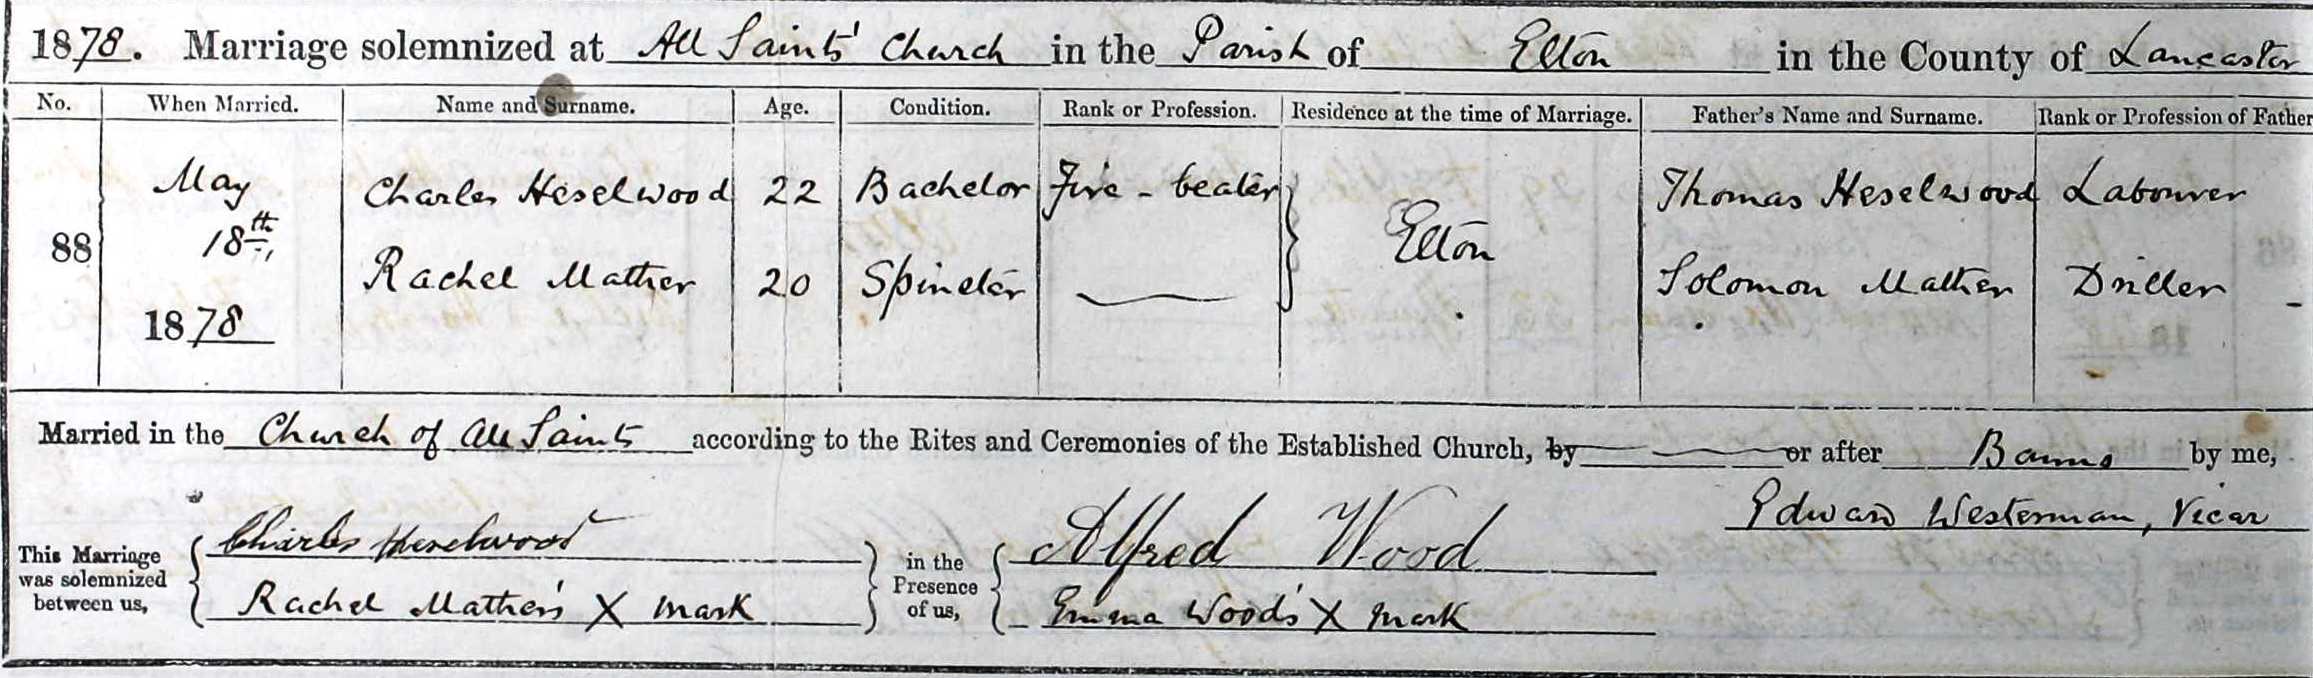 1878. Marriage solemnized at All Saints' Church in the Parish of Elton in the County of Lancaster
No. When Married. Name and Surname. Age. Condition. Rank or Profession. Residence at the time of Marriage. Father's Name and Surname. Rank or Profession of Father
88 May 18th, 1878 Charles Heselwood 22 Bachelor Fire-beater Elton Thomas Heselwood Labourer
Rachel Mather 20 Spinster — Solomon Mather Driller
Married in the Church of All Saints according to the Rites and Ceremonies of the Established Church, by — or after Banns by me,
Edward Westerman, Vicar
This Marriage was solemnized between us, Charles Heselwood in the Presence of us, Alfred Wood
Rachel Mather's X mark Emma Wood's X mark